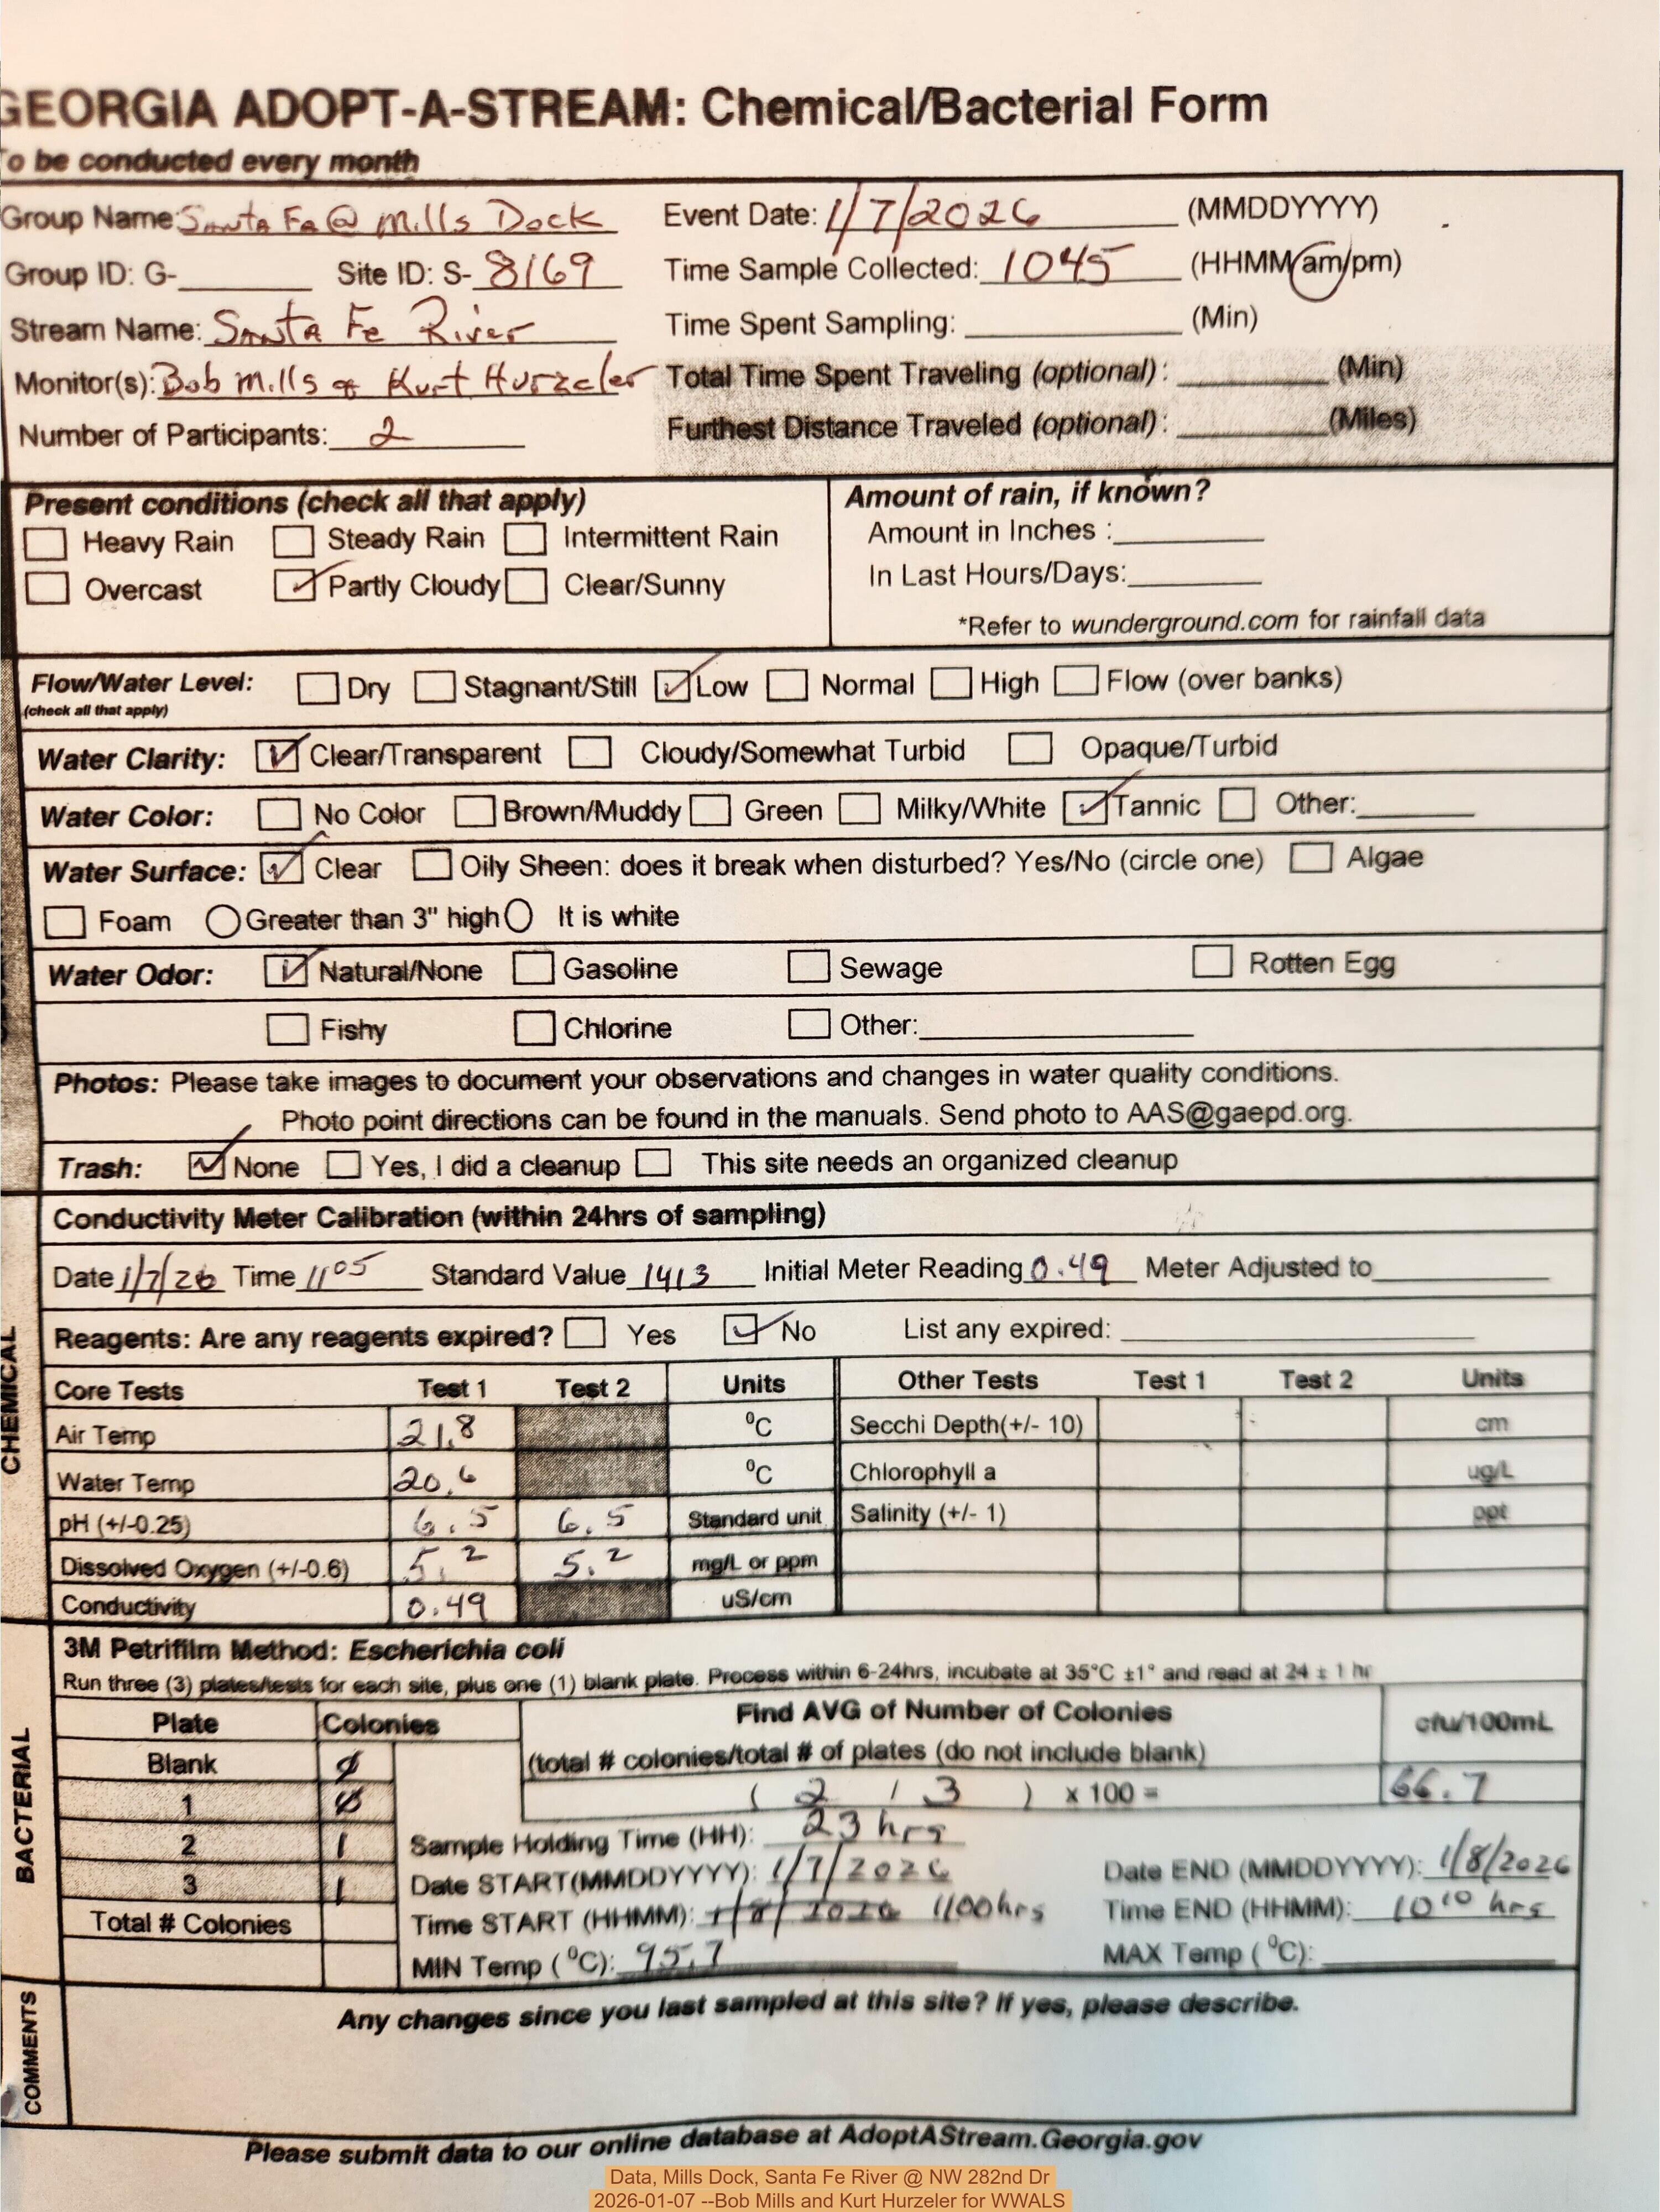 GEORGIA ADOPT-A-STREAM: Chemical/Bacterial Form
To be conducted every month
Group Name: Santa Fe @ Mills Dock Event Date: 1/7/2026 (MMDDYYYY)
Group ID: G-______ Site ID: S- 8169 Time Sample Collected: 1045 (HHMM am/pm)
Stream Name: Santa Fe River Time Spent Sampling: ______ (Min)
Monitor(s): Bob Mills & Kurt Hurzeler Total Time Spent Traveling (optional): ______ (Min)
Number of Participants: 2 Furthest Distance Traveled (optional): ______ (Miles)
Present conditions (check all that apply) Amount of rain, if known?
Heavy Rain Steady Rain Intermittent Rain Amount in Inches :______
Overcast ✓ Partly Cloudy Clear/Sunny In Last Hours/Days:______
*Refer to wunderground.com for rainfall data
Flow/Water Level: Dry Stagnant/Still ✓ Low Normal High Flow (over banks)
(check all that apply)
Water Clarity: ✓ Clear/Transparent Cloudy/Somewhat Turbid Opaque/Turbid
Water Color: No Color Brown/Muddy Green Milky/White ✓ Tannic Other:______
Water Surface: ✓ Clear Oily Sheen: does it break when disturbed? Yes/No (circle one) Algae
Foam Greater than 3" high It is white
Water Odor: ✓ Natural/None Gasoline Sewage Rotten Egg
Fishy Chlorine Other:______
Photos: Please take images to document your observations and changes in water quality conditions.
Photo point directions can be found in the manuals. Send photo to AAS@gaepd.org.
Trash: ✓ None Yes, I did a cleanup This site needs an organized cleanup
CHEMICAL
Conductivity Meter Calibration (within 24hrs of sampling)
Date 1/7/26 Time 11 05 Standard Value 1413 Initial Meter Reading 0.49 Meter Adjusted to______
Reagents: Are any reagents expired? Yes ✓ No List any expired: ______
Core Tests Test 1 Test 2 Units Other Tests Test 1 Test 2 Units
Air Temp 21.8 °C Secchi Depth(+/- 10) cm
Water Temp 20.6 °C Chlorophyll a ug/L
pH (+/-0.25) 6.5 6.5 Standard unit Salinity (+/- 1) ppt
Dissolved Oxygen (+/-0.6) 5.2 5.2 mg/L or ppm
Conductivity 0.49 uS/cm
BACTERIAL
3M Petrifilm Method: Escherichia coli
Run three (3) plates/tests for each site, plus one (1) blank plate. Process within 6-24hrs, incubate at 35°C ±1° and read at 24 ± 1 hr
Plate Colonies Find AVG of Number of Colonies cfu/100mL
Blank Ø (total # colonies/total # of plates (do not include blank)
1 Ø ( 2 / 3 ) x 100 = 66.7
2 1 Sample Holding Time (HH): 23 hrs
3 1 Date START(MMDDYYYY): 1/7/2026 Date END (MMDDYYYY): 1/8/2026
Total # Colonies Time START (HHMM): 1/8/2026 1100hrs Time END (HHMM): 10 10 hrs
MIN Temp (°C): 95.7 MAX Temp (°C): ______
COMMENTS
Any changes since you last sampled at this site? If yes, please describe.
Please submit data to our online database at AdoptAStream.Georgia.gov
Data, Mills Dock, Santa Fe River @ NW 282nd Dr
2026-01-07 --Bob Mills and Kurt Hurzeler for WWALS